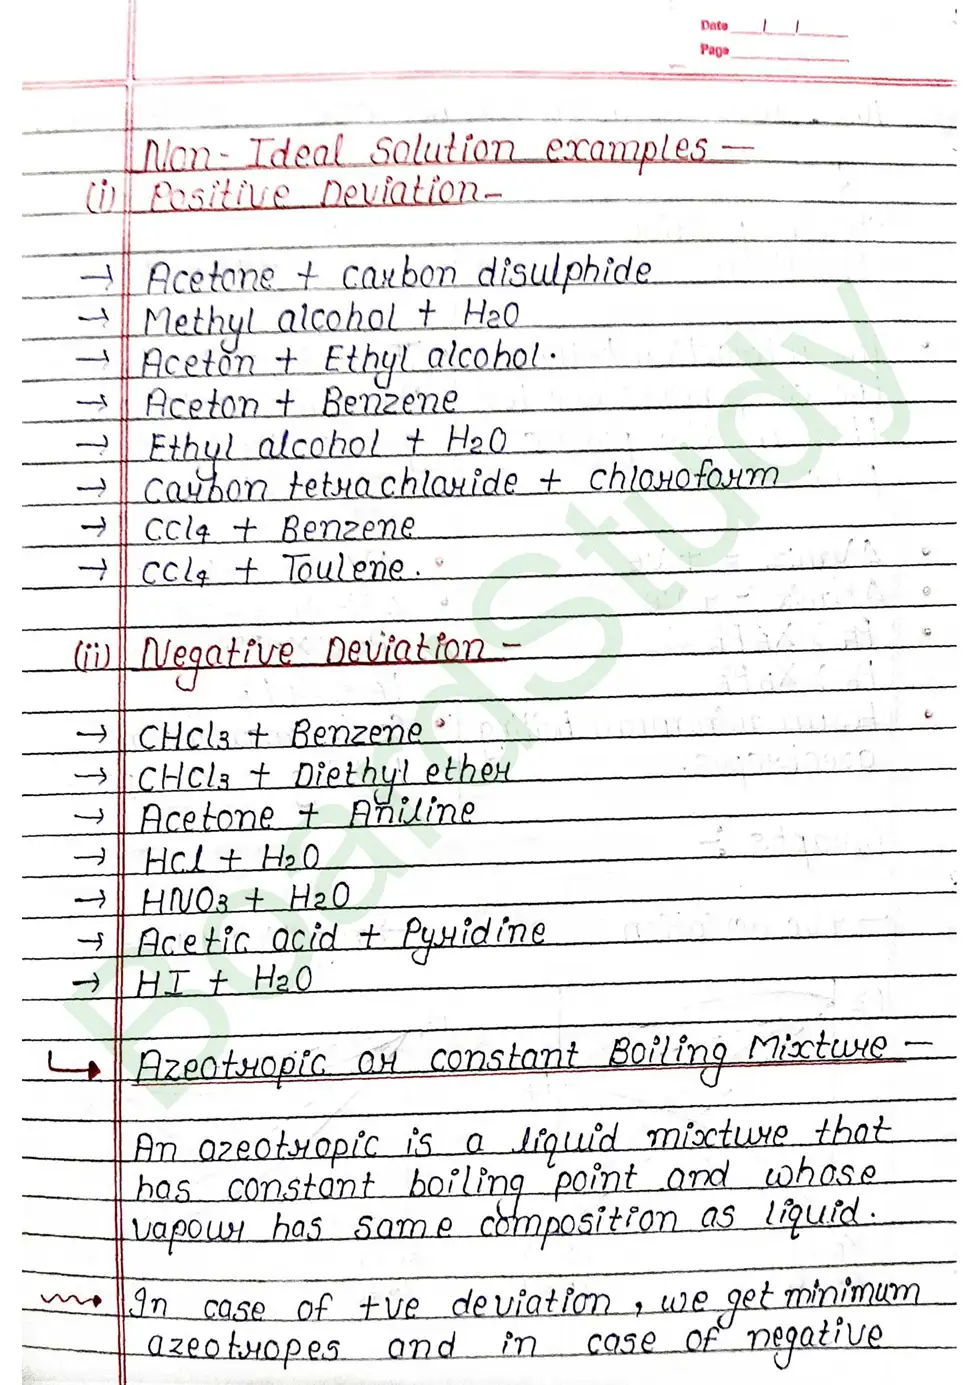 Date / /
Page
Non-Ideal Solution examples —
(i) Positive Deviation-
→ Acetone + carbon disulphide
→ Methyl alcohol + H2O
→ Aceton + Ethyl alcohol.
→ Aceton + Benzene
→ Ethyl alcohol + H2O
→ Carbon tetrachloride + chloroform
→ CCl4 + Benzene
→ CCl4 + Toulene.
(ii) Negative Deviation -
→ CHCl3 + Benzene
→ CHCl3 + Diethyl ether
→ Acetone + Aniline
→ HCl + H2O
→ HNO3 + H2O
→ Acetic acid + Pyridine
→ HI + H2O
↳ Azeotropic or constant Boiling Mixture —
An azeotropic is a liquid mixture that
has constant boiling point and whose
vapour has same composition as liquid.
In case of +ve deviation, we get minimum
azeotropes and in case of negative
BoardStudy